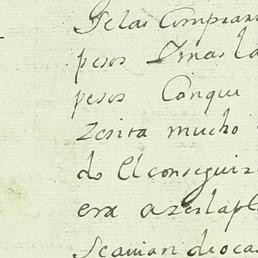 Se las Comprar
pesos Dmas la
pesos Conque
Zesita mucho
do El conseguir
era azerlapl
Seavian de oca